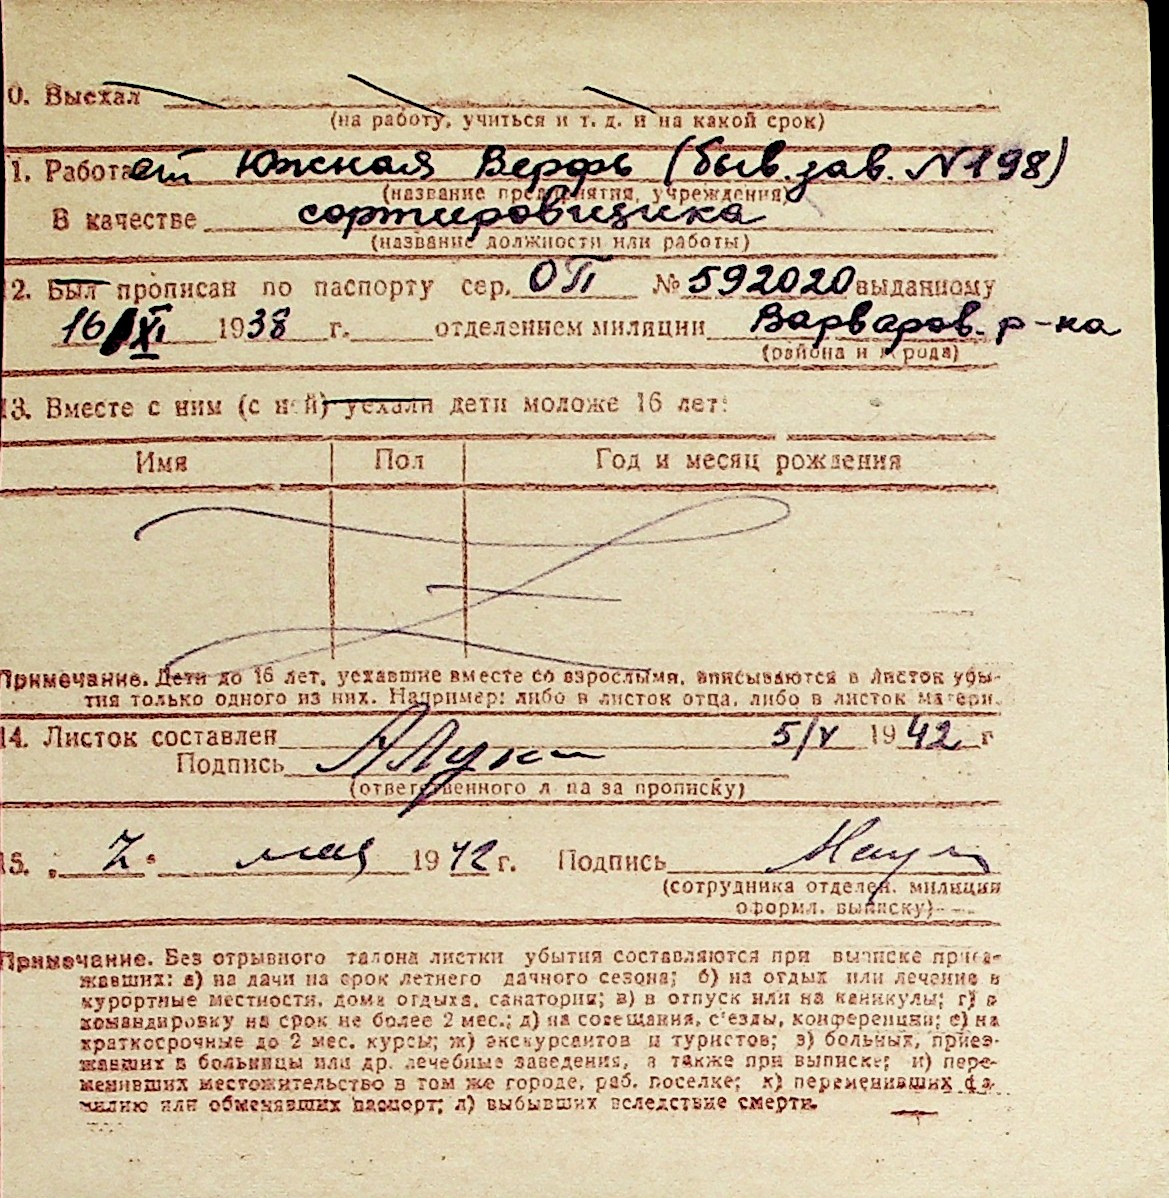 0. Выехал
(на работу, учиться и т. д. и на какой срок)
1. Работает Южная Верфь (быв. зав. №198)
(название предприятия, учреждения)
В качестве сортировщика
(название должности или работы)
2. Был прописан по паспорту сер. ОП № 592020 выданному
16 XI 1938 г. отделением милиции Варваров. р-на
(района и города)
13. Вместе с ним (с ней) уехали дети моложе 16 лет:
Имя Пол Год и месяц рождения
Примечание. Дети до 16 лет, уехавшие вместе со взрослыми, вписываются в листок убы-
тия только одного из них. Например: либо в листок отца, либо в листок матери.
14. Листок составлен 5/V 1942 г
Подпись
(ответственного лица за прописку)
15. 7 мая 1942 г. Подпись
(сотрудника отделен. милиции
оформл. выписку)
Примечание. Без отрывного талона листки убытия составляются при выписке приез-
жавших: а) на дачи на срок летнего дачного сезона; б) на отдых или лечение в
курортные местности, дома отдыха, санатории; в) в отпуск или на каникулы; г) в
командировку на срок не более 2 мес.; д) на совещания, с'езды, конференции; е) на
краткосрочные до 2 мес. курсы; ж) экскурсантов и туристов; з) больных, приез-
жавших в больницы или др. лечебные заведения, а также при выписке; и) пере-
менивших местожительство в том же городе, раб. поселке; к) переменивших фа-
милию или обменявших паспорт; л) выбывших вследствие смерти.